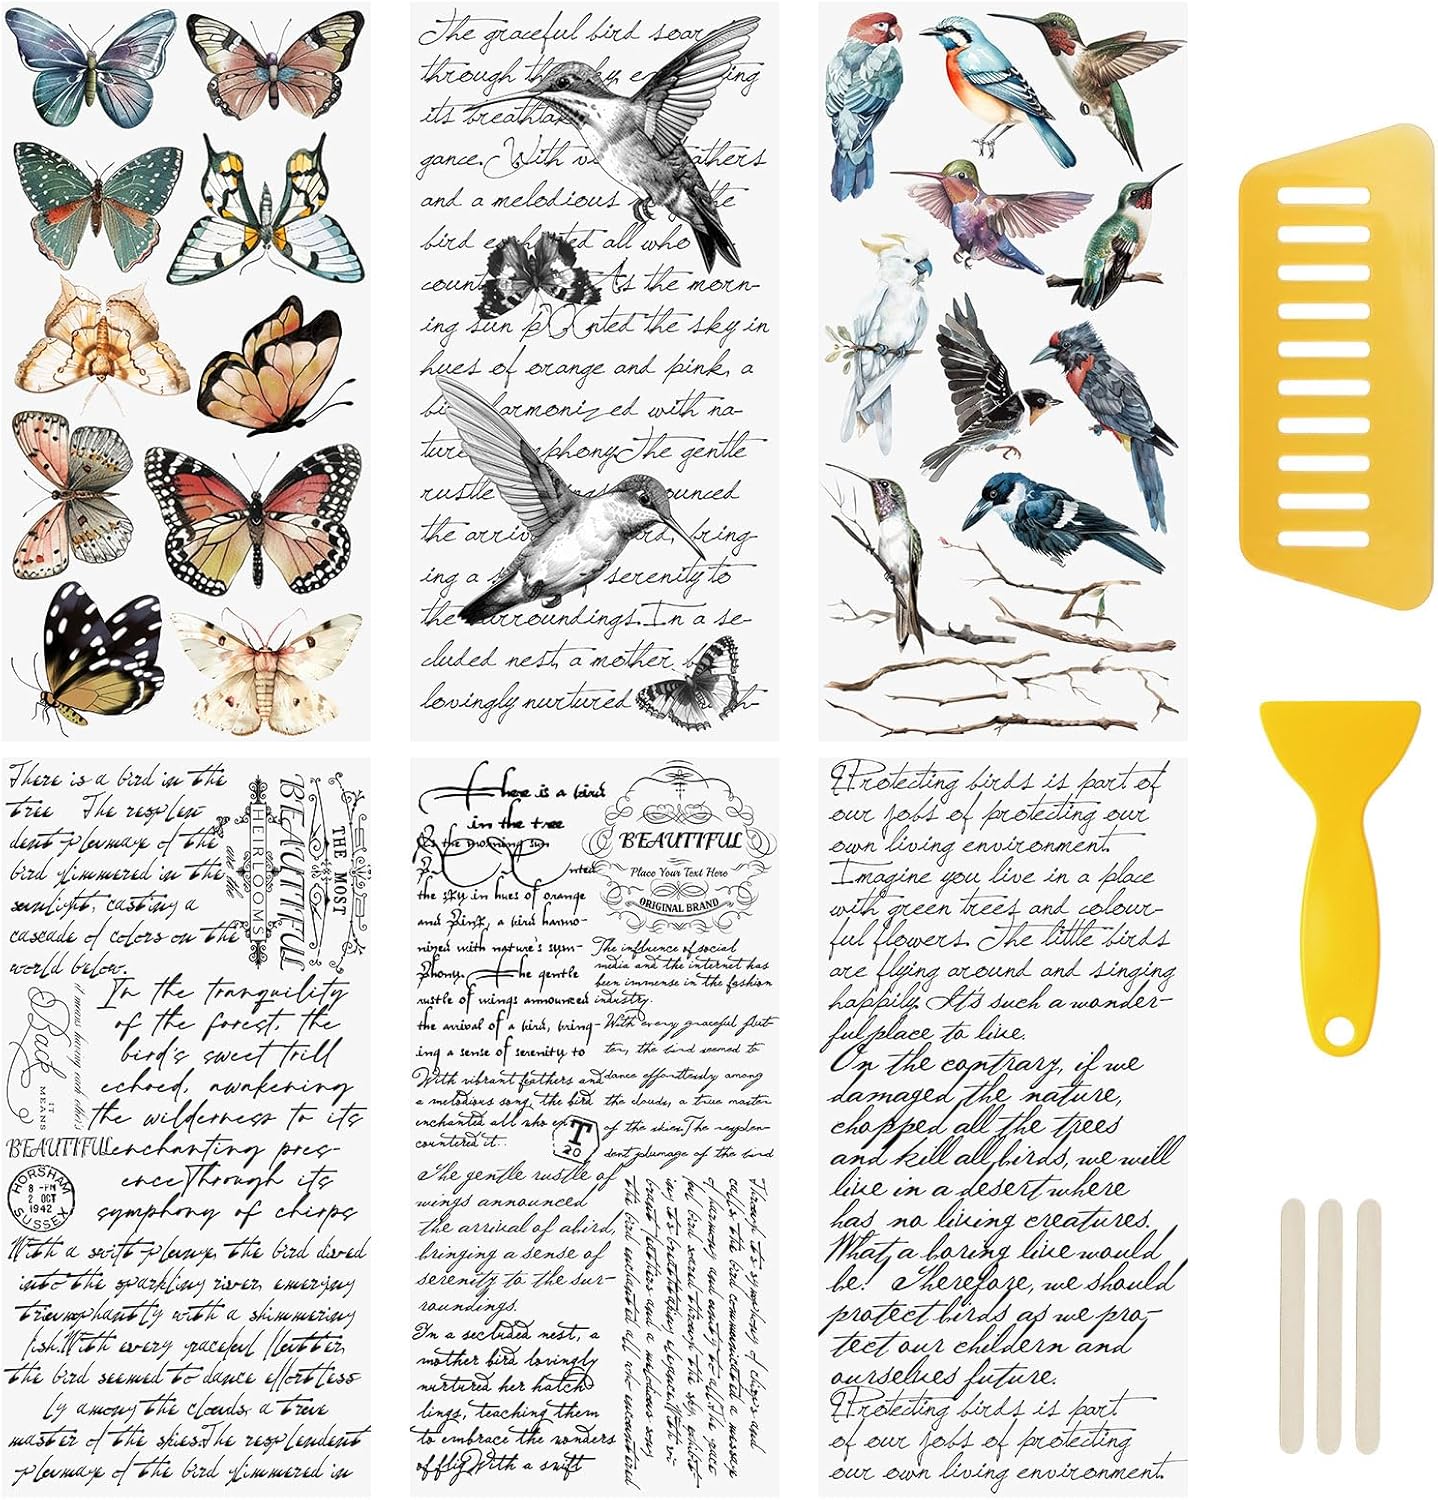 The graceful bird soar
through th
its breathta
gance. With vi
and a melodious
the
bird en
ted all who
count
As the morn-
ing sun p
nted the sky in
hues of orange and pink, a
bi
harmonized with na-
ture
mphony. The gentle
rustle
ounced
the arriv
bring-
ing a s
serenity to
the surroundings. In a se-
cluded nest, a mother b
lovingly nurtured
There is a bird in the
tree The resplen-
dent plumage of the
bird glimmered in the
sunlight, casting a
cascade of colors on the
world below.
and the
HEIRLOOMS
BEAUTIFUL
THE MOST
In the tranquility
of the forest, the
bird's sweet trill
echoed, awakening
the wilderness to its
enchanting pres-
ence Through its
symphony of chirps
it means having each other
Back
IT
MEANS
BEAUTIFUL
HORSHAM
8 - PM
2 OCT
1942
SUSSEX
With a swift plunge, the bird dived
into the sparkling river, emerging
triumphantly with a shimmering
fish. With every graceful flutter,
the bird seemed to dance effortless-
ly among the clouds, a true
master of the skies. The resplendent
plumage of the bird glimmered in
There is a bird
in the tree
As the morning sun
p
nted
the sky in hues of orange
and pink, a bird harmo-
nized with nature's sym-
phony. The gentle
rustle of wings announced
the arrival of a bird, bring-
ing a sense of serenity to
With vibrant feathers and
a melodious song, the bird
enchanted all who en
countered it..
BEAUTIFUL
Place Your Text Here
ORIGINAL BRAND
The influence of social
media and the internet has
been immense in the fashion
industry.
With every graceful flut-
ter, the bird seemed to
dance effortlessly among
the clouds, a true master
of the skies. The resplen-
dent plumage of the bird
T
20
The gentle rustle of
wings announced
the arrival of a bird,
bringing a sense of
serenity to the sur-
roundings.
In a secluded nest, a
mother bird lovingly
nurtured her hatch-
lings, teaching them
to embrace the wonders
of flig With a swift
Through its symphony of chirps and
calls, the bird communicated a message
of harmony and unity to all. The grace
ful bird soared through the sky, exhibit
ing its breathtaking elegance. With vi-
brant feathers and a melodious song
the bird enchanted all who encountered
Protecting birds is part of
our jobs of protecting our
own living environment.
Imagine you live in a place
with green trees and colour-
ful flowers. The little birds
are flying around and singing
happily. It's such a wonder-
ful place to live.
On the contrary, if we
damaged the nature,
chopped all the trees
and kill all birds, we will
live in a desert where
has no living creatures.
What a boring live would
be! Therefore, we should
protect birds as we pro-
tect our childern and
ourselves future.
Protecting birds is part
of our jobs of protecting
our own living environment.